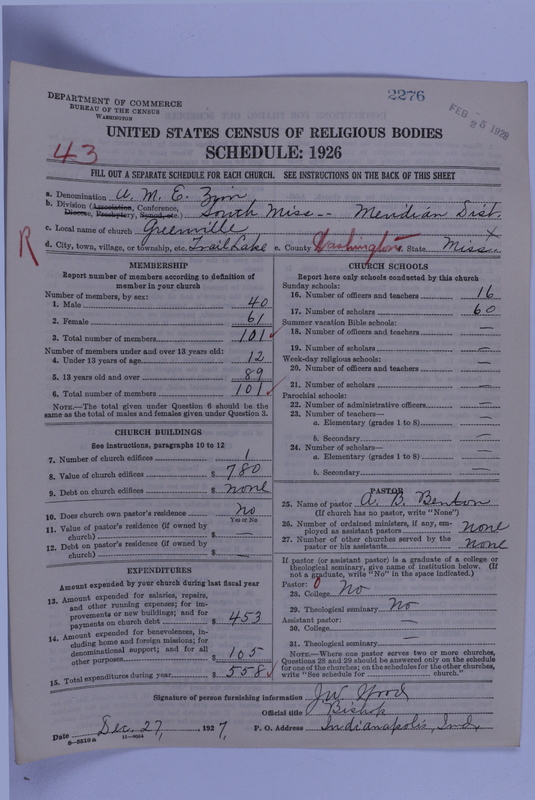 DEPARTMENT OF COMMERCE
BUREAU OF THE CENSUS
WASHINGTON
2276
FEB 25 1928
UNITED STATES CENSUS OF RELIGIOUS BODIES
43
SCHEDULE: 1926
FILL OUT A SEPARATE SCHEDULE FOR EACH CHURCH. SEE INSTRUCTIONS ON THE BACK OF THIS SHEET
a. Denomination A. M. E. Zion
b. Division (Association, Conference, Diocese, Presbytery, Synod, etc.) South Miss -- Meridian Dist.
c. Local name of church Greenville
R
d. City, town, village, or township, etc. Trail Lake e. County Washington f. State Miss. X
MEMBERSHIP
Report number of members according to definition of member in your church
Number of members, by sex:
1. Male 40
2. Female 61
3. Total number of members 101 ✓
Number of members under and over 13 years old:
4. Under 13 years of age 12
5. 13 years old and over 89
6. Total number of members 101 ✓
NOTE.—The total given under Question 6 should be the
same as the total of males and females given under Question 3.
CHURCH BUILDINGS
See instructions, paragraphs 10 to 12
7. Number of church edifices 1
8. Value of church edifices $ 780
9. Debt on church edifices $ none
10. Does church own pastor's residence? No
Yes or No
11. Value of pastor's residence (if owned by
church) $ —
12. Debt on pastor's residence (if owned by
church) $ —
EXPENDITURES
Amount expended by your church during last fiscal year
13. Amount expended for salaries, repairs,
and other running expenses; for im-
provements or new buildings; and for
payments on church debt $ 453
14. Amount expended for benevolences, in-
cluding home and foreign missions; for
denominational support; and for all
other purposes $ 105
15. Total expenditures during year $ 558 ✓
CHURCH SCHOOLS
Report here only schools conducted by this church
Sunday schools:
16. Number of officers and teachers 16
17. Number of scholars 60
Summer vacation Bible schools:
18. Number of officers and teachers —
19. Number of scholars —
Week-day religious schools:
20. Number of officers and teachers —
21. Number of scholars —
Parochial schools:
22. Number of administrative officers —
23. Number of teachers—
a. Elementary (grades 1 to 8) —
b. Secondary —
24. Number of scholars—
a. Elementary (grades 1 to 8) —
b. Secondary —
PASTOR
25. Name of pastor A. B. Benton
(If church has no pastor, write "None")
26. Number of ordained ministers, if any, em-
ployed as assistant pastors none
27. Number of other churches served by the
pastor or his assistants none
If pastor (or assistant pastor) is a graduate of a college or
theological seminary, give name of institution below. (If
not a graduate, write "No" in the space indicated.)
Pastor: 0
28. College No
29. Theological seminary No
Assistant pastor:
30. College —
31. Theological seminary —
NOTE.—Where one pastor serves two or more churches,
Questions 28 and 29 should be answered only on the schedule
for one of the churches; on the schedules for the other churches,
write "See schedule for church."
Signature of person furnishing information J W Wood
Official title Bishop
Date Dec. 27, 1927, P. O. Address Indianapolis, Ind.